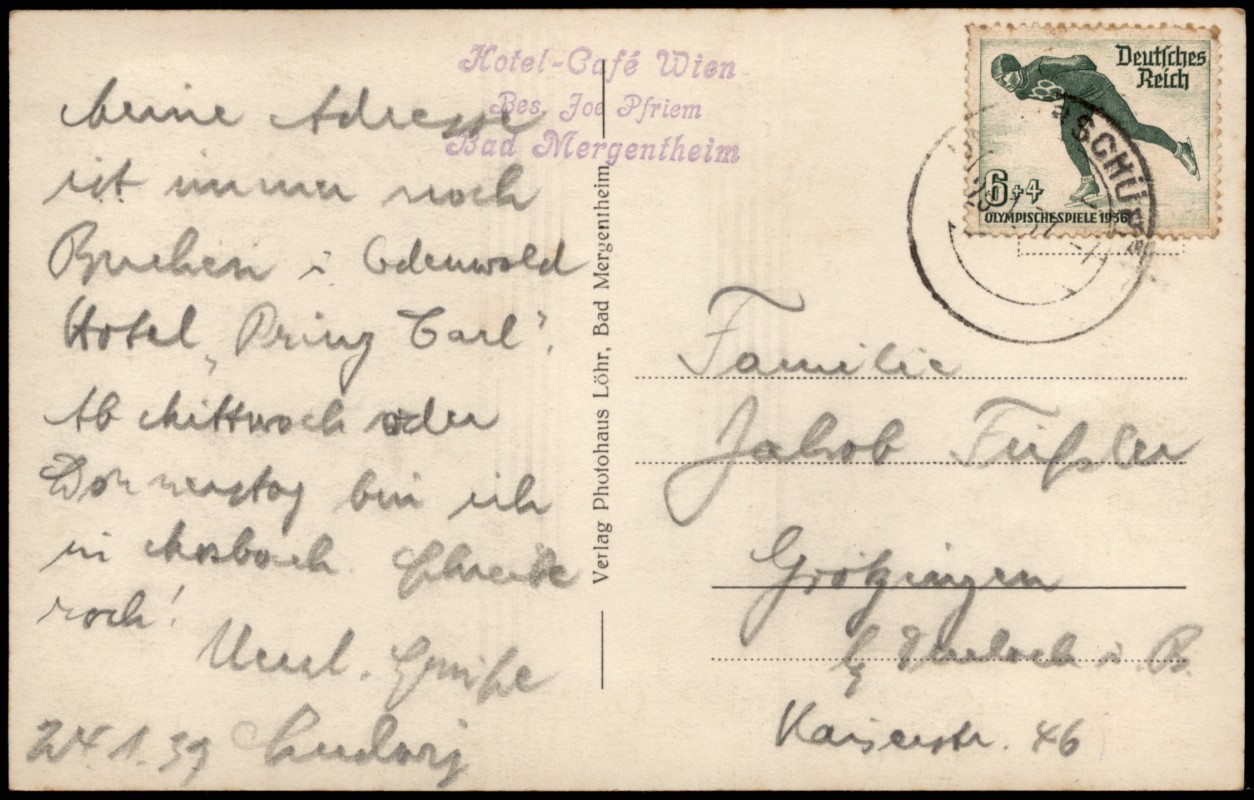 Hotel-Café Wien
Bes. Joe Pfriem
Bad Mergentheim
Meine Adresse
ist immer noch
Buchen i Odenwald
Hotel „Prinz Carl".
Ab Mittwoch oder
Donnerstag bin ich
in Mosbach. Schreibe
noch!
Herzl. Grüße
Ludwig
Verlag Photohaus Löhr, Bad Mergentheim
Deutsches
Reich
6+4
OLYMPISCHE SPIELE 1936
SCHÜ
Familie
Jakob Füßler
Grötzingen
b/ Durlach i. B.
Kaiserstr. 46